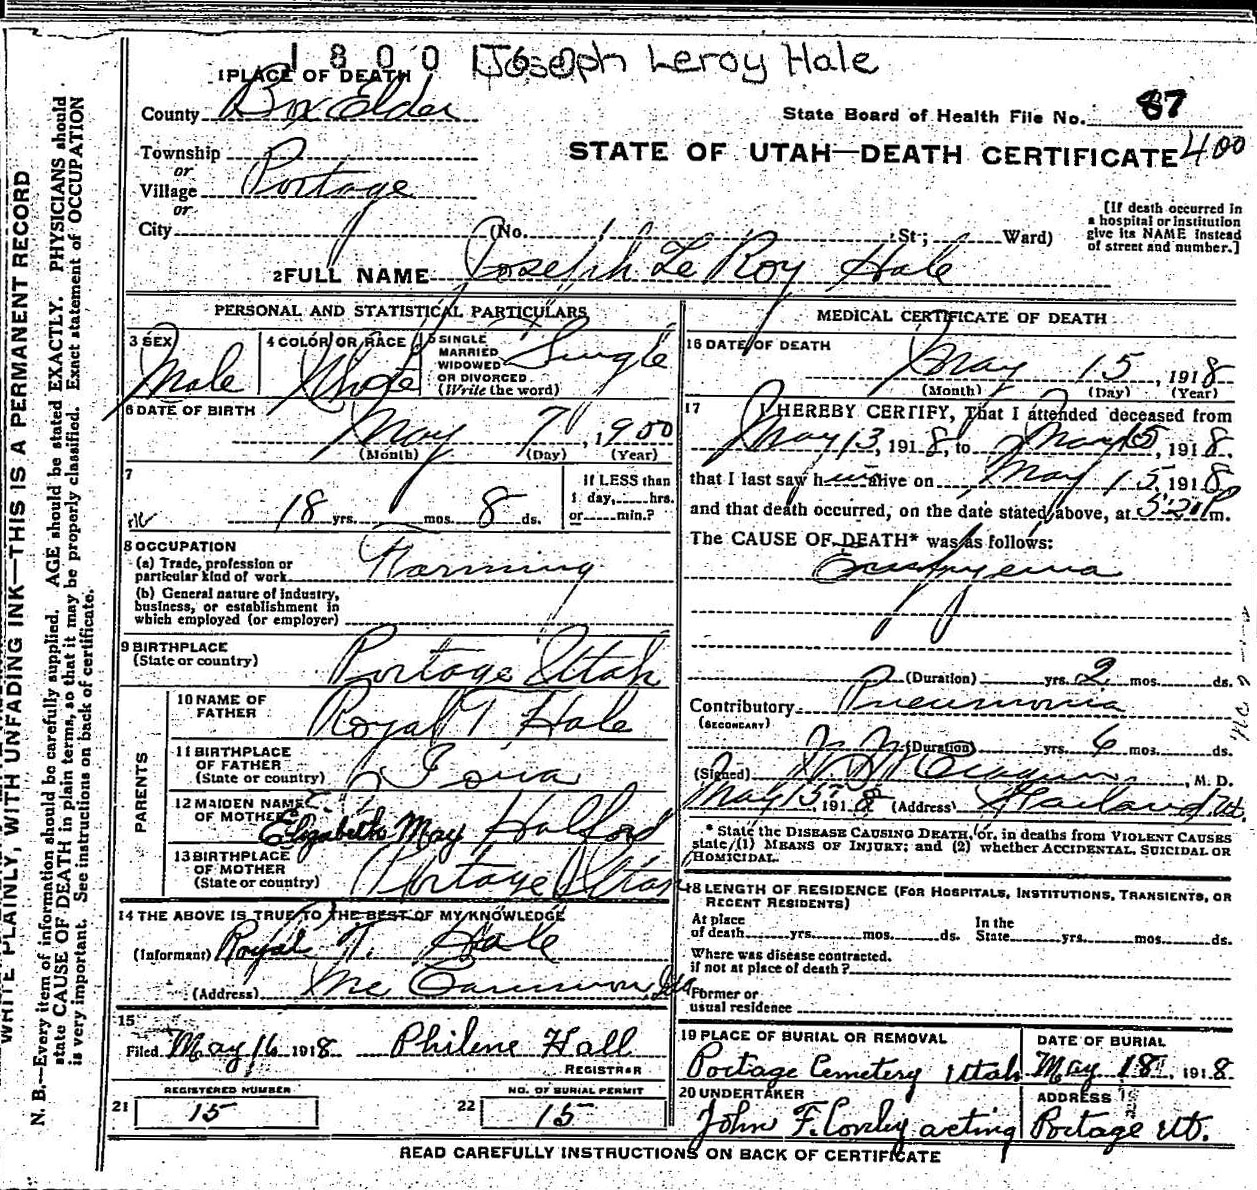 1 8 0 0 1 6 0
Joseph Leroy Hale
1 PLACE OF DEATH
County Box Elder
State Board of Health File No. 87
STATE OF UTAH—DEATH CERTIFICATE 400
Township
or
Village Portage
or
City (No. St; Ward)
[If death occurred in
a hospital or institution
give its NAME instead
of street and number.]
2 FULL NAME Joseph Le Roy Hale
PERSONAL AND STATISTICAL PARTICULARS
3 SEX Male
4 COLOR OR RACE White
5 SINGLE
MARRIED
WIDOWED
OR DIVORCED
(Write the word) Single
6 DATE OF BIRTH
May 7, 1900
(Month) (Day) (Year)
7
18 yrs. mos. 8 ds.
If LESS than
1 day, hrs.
or min.?
8 OCCUPATION
(a) Trade, profession or
particular kind of work Farming
(b) General nature of industry,
business, or establishment in
which employed (or employer)
9 BIRTHPLACE
(State or country) Portage Utah
PARENTS
10 NAME OF
FATHER Royal T Hale
11 BIRTHPLACE
OF FATHER
(State or country) Iowa
12 MAIDEN NAME
OF MOTHER Elizabeth May Halford
13 BIRTHPLACE
OF MOTHER
(State or country) Portage Utah
14 THE ABOVE IS TRUE TO THE BEST OF MY KNOWLEDGE
(Informant) Royal T. Hale
(Address) Mc Cammon, Ida
15
Filed May 16 1918 Philene Hall
REGISTRAR
REGISTERED NUMBER
21 15
NO. OF BURIAL PERMIT
22 15
MEDICAL CERTIFICATE OF DEATH
16 DATE OF DEATH
May 15, 1918
(Month) (Day) (Year)
17 I HEREBY CERTIFY, That I attended deceased from
May 13, 1918, to May 15, 1918,
that I last saw him alive on May 15, 1918
and that death occurred, on the date stated above, at m.
The CAUSE OF DEATH* was as follows:
Empyema
(Duration) yrs. 2 mos. ds.
Contributory Pneumonia
(SECONDARY)
(Duration) yrs. 6 mos. ds.
(Signed) , M. D.
May 15, 1918 (Address) Garland, Ut.
* State the DISEASE CAUSING DEATH, or, in deaths from VIOLENT CAUSES
state (1) MEANS OF INJURY; and (2) whether ACCIDENTAL, SUICIDAL OR
HOMICIDAL.
18 LENGTH OF RESIDENCE (FOR HOSPITALS, INSTITUTIONS, TRANSIENTS, OR
RECENT RESIDENTS)
At place
of death yrs. mos. ds.
In the
State yrs. mos. ds.
Where was disease contracted.
if not at place of death?
Former or
usual residence
19 PLACE OF BURIAL OR REMOVAL
Portage Cemetery Utah
DATE OF BURIAL
May 18, 1918.
20 UNDERTAKER
John F. acting
ADDRESS
Portage Ut.
READ CAREFULLY INSTRUCTIONS ON BACK OF CERTIFICATE
WRITE PLAINLY, WITH UNFADING INK—THIS IS A PERMANENT RECORD
N. B.—Every item of information should be carefully supplied. AGE should be stated EXACTLY. PHYSICIANS should
state CAUSE OF DEATH in plain terms, so that it may be properly classified. Exact statement of OCCUPATION
is very important. See instructions on back of certificate.